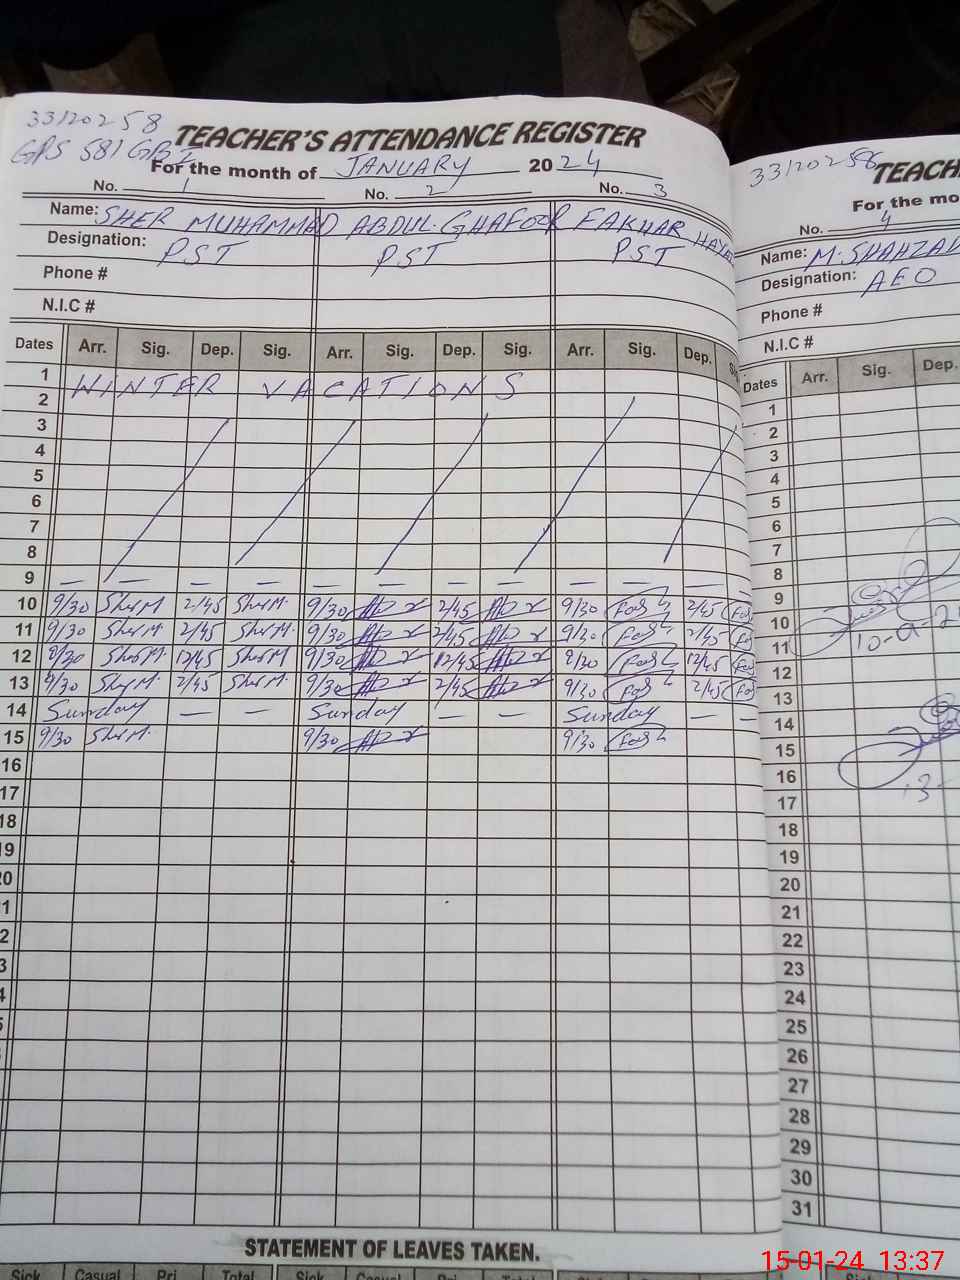 33120258
GPS 581 GB I
TEACHER'S ATTENDANCE REGISTER
For the month of JANUARY 2024
No. 1 No. 2 No. 3
Name: SHER MUHAMMAD ABDUL GHAFOOR FAKHAR HAYAT
Designation: PST PST PST
Phone #
N.I.C #
Dates Arr. Sig. Dep. Sig. Arr. Sig. Dep. Sig. Arr. Sig. Dep.
1 WINTER VACATIONS
2
3
4
5
6
7
8
9 — — — — — — — — — — —
10 9/30 Sher M. 2/45 Sher M. 9/30 2/45 9/30 2/45
11 9/30 Sher M. 2/45 Sher M. 9/30 2/45 9/30 2/45
12 9/30 Sher M. 12/45 Sher M. 9/30 12/45 9/30 12/45
13 9/30 Sher M. 2/45 Sher M. 9/30 2/45 9/30 2/45
14 Sunday — — Sunday — — Sunday — —
15 9/30 Sher M. 9/30 9/30
16
17
18
19
20
1
2
3
4
5
STATEMENT OF LEAVES TAKEN.
Sick Casual Pri Total Sick Casual Pri Total
33120258
TEACH
For the mo
No. 4
Name: M. SHAHZAD
Designation: AEO
Phone #
N.I.C #
Dates Arr. Sig. Dep.
1
2
3
4
5
6
7
8
9
10
11
12
13
14
15
16
17
18
19
20
21
22
23
24
25
26
27
28
29
30
31
15-01-24 13:37